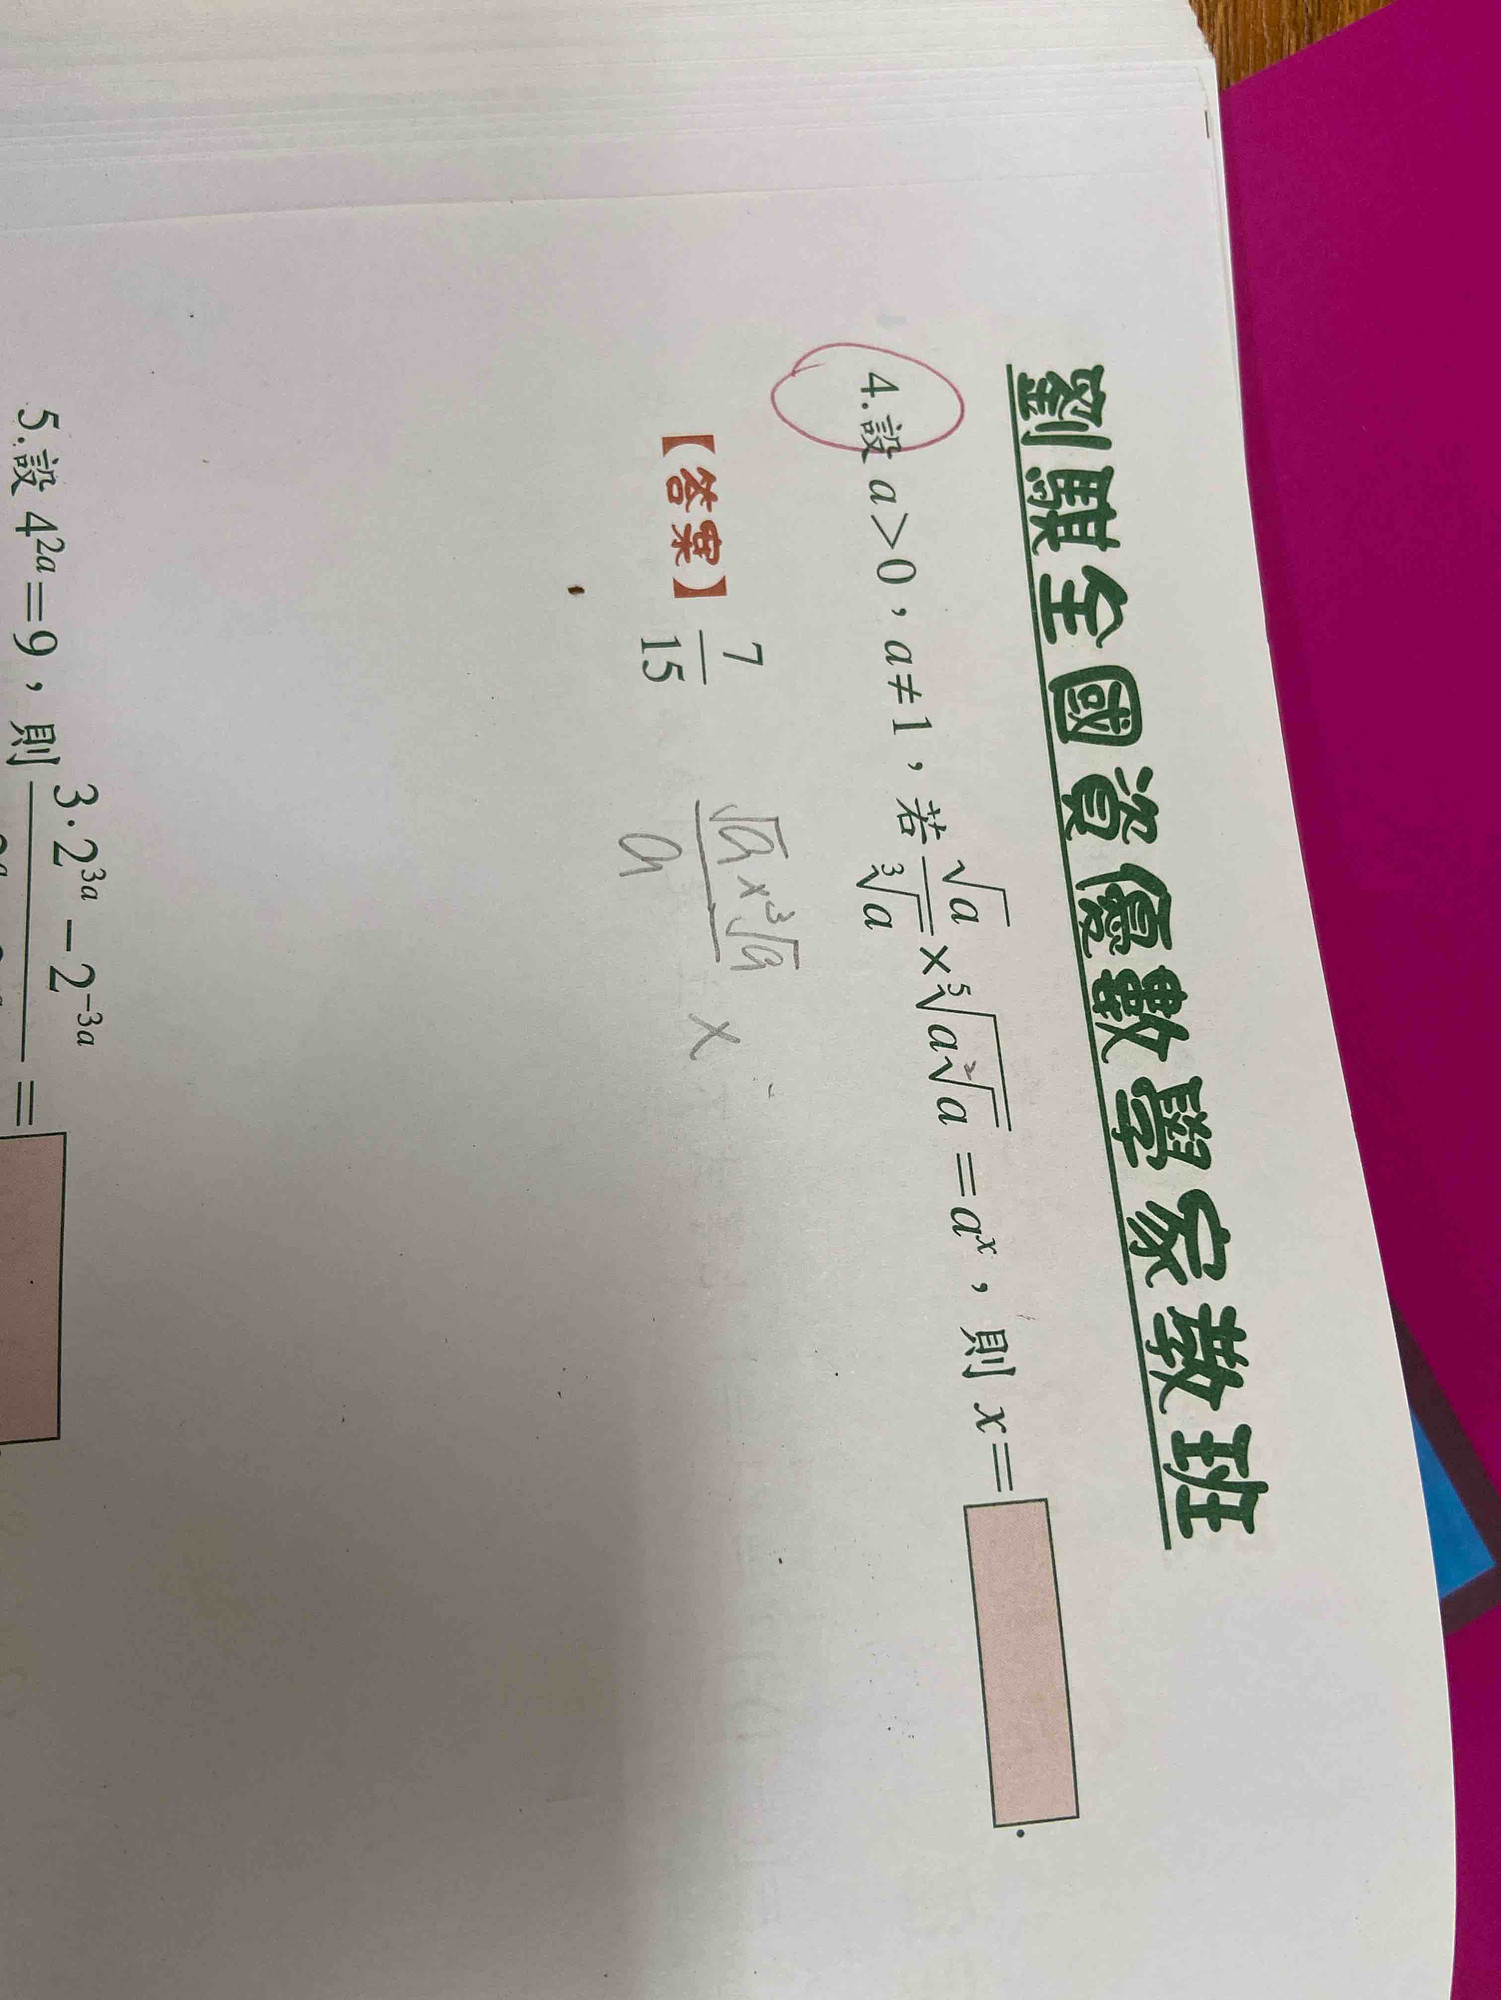 劉騏全國資優數學家教班
4.設 a>0，a≠1，若 √a/∛a × ⁵√(a²√a) = aˣ，則 x=
【答案】7/15
√a × ³√a / a ×
5.設 4²ᵃ=9，則 3·2³ᵃ − 2⁻³ᵃ =